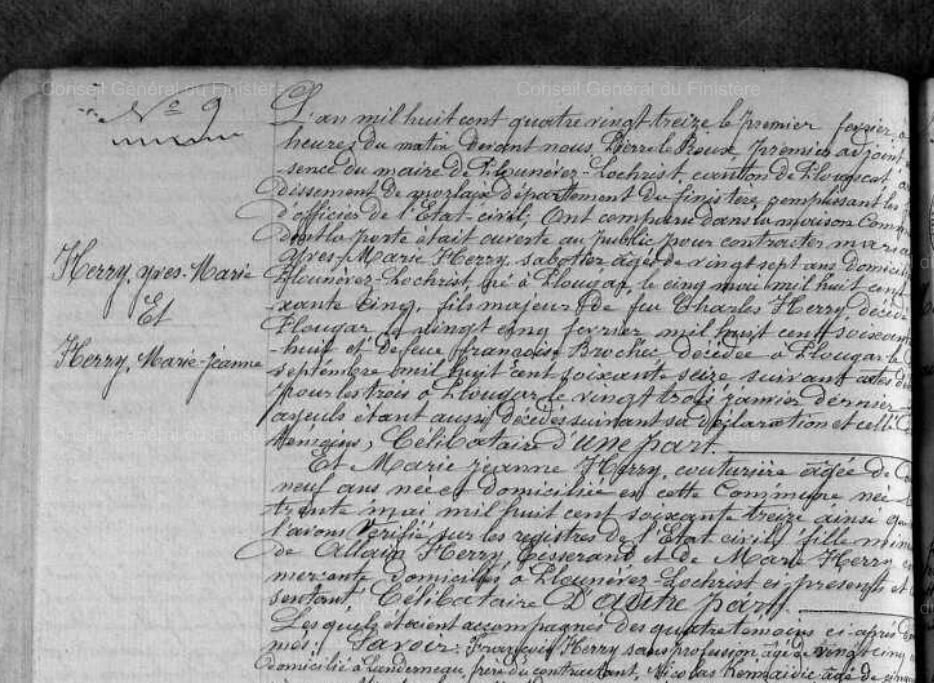 Conseil Général du Finistère Conseil Général du Finistère
Nº 9
L'an mil huit cent quatre vingt treize le premier fevrier a
heures du matin devant nous Pierre le Roux, premier adjoint
sence du maire de Plounévez-Lochrist, canton de Plouescat
dissement de morlaix département du finistère remplissant les
d'officier de l'Etat-civil, Ont comparu dans la maison Comm
dont la porte était ouverte au public pour contracter maria
Herry, yves-Marie
Et
Herry, Marie-jeanne
Yves-Marie Herry, sabotier âgé de vingt sept ans domicilié
Plounévez-Lochrist, né à Plougar, le cinq mil huit cent
-xante cinq, fils majeur de feu Charles Herry, décédé
Plougar le vingt cinq fevrier mil huit cent soixant
-huit et de feue françoise Brochec, décédée à Plougar le
septembre mil huit cent soixante seize suivant actes
pour les trois à Plougar le vingt trois janvier dernier
ayeuls étant aussi décédés suivant sa déclaration et celle
témoins, Célibataire d'une part.
Conseil Général du Finistère Conseil Général du Finistère
Et Marie jeanne Herry, couturière âgée de
neuf ans née et domiciliée en cette Commune née
trente mai mil huit cent soixante treize ainsi que
l'avons Vérifié sur les registres de l'Etat civil, fille mine
de Allain Herry tisserand et de Marie Herry
domiciliés à Plounévez-Lochrist ci-présents et
sentant, Célibataire D'autre part.
Les quels étoient accompagnés des quatre témoins ci-après
més: Savoir: François Herry sans profession âgé de vingt cinq
domicilié à Landerneau, frère du contractant, Nicolas âgé de